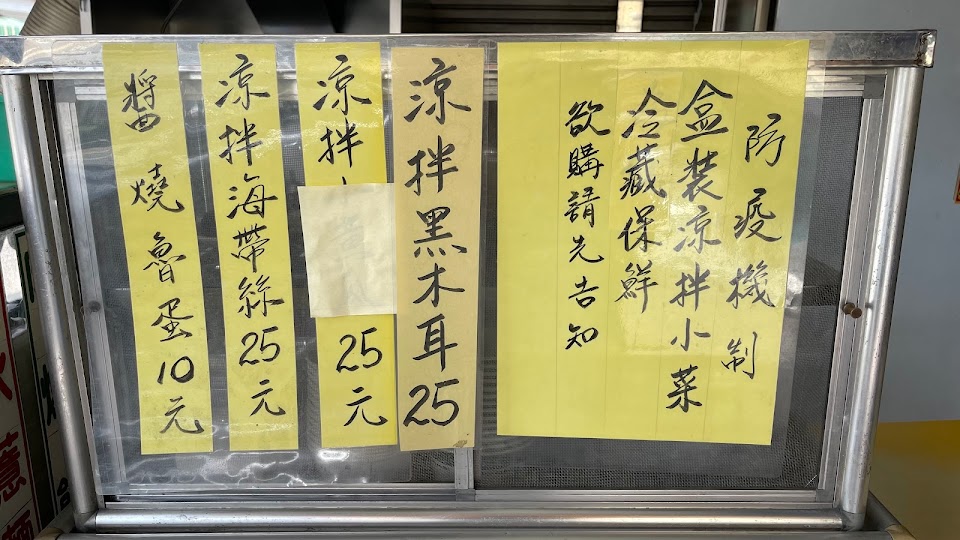 防疫機制
盒裝涼拌小菜
冷藏保鮮
欲購請先告知
涼拌黑木耳25
涼拌
25元
涼拌海帶絲25元
醬燒魯蛋10元